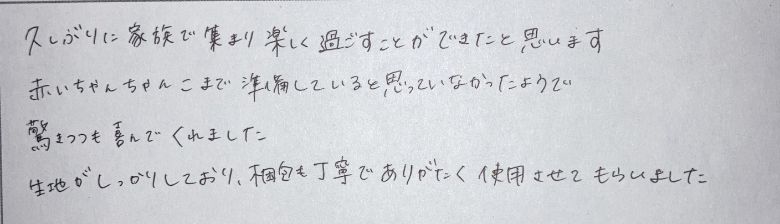 久しぶりに家族で集まり楽しく過ごすことができたと思います
赤いちゃんちゃんこまで準備していると思っていなかったようで
驚きつつも喜んでくれました
生地がしっかりしており、梱包も丁寧でありがたく使用させてもらいました